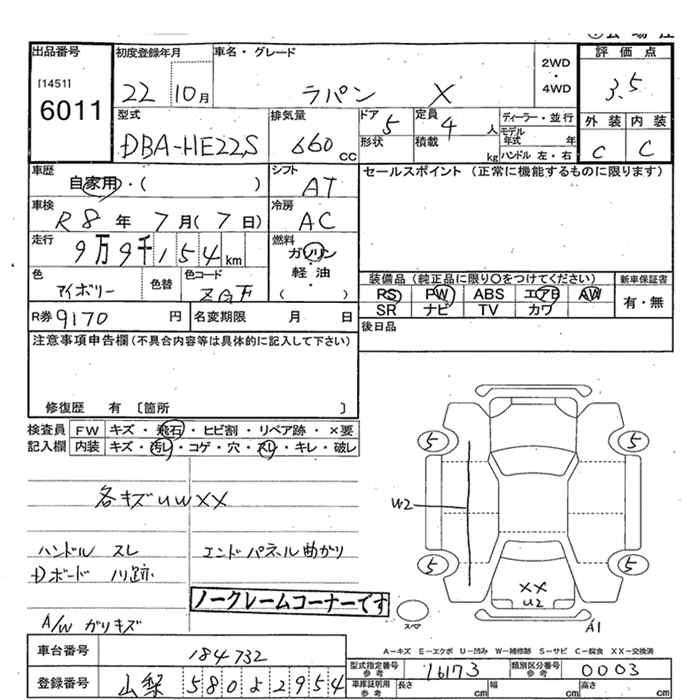 出品番号 初度登録年月 車名・グレード 評価点
[1451]
6011
22 10月 ラパン X 2WD・4WD 3.5
型式 排気量 ドア 5 定員 4人 ディーラー・並行 外装 内装
DBA-HE22S 660cc 形状 積載 kg モデル年式 年 C C
ハンドル 左・右
車歴 自家用・( ) シフト AT セールスポイント(正常に機能するものに限ります)
車検 R8年7月(7日) 冷房 AC
走行 9万9千154km 燃料 ガソリン
軽油
( )
色 アイボリー 色替 色コード
装備品(純正品に限り○をつけてください) 新車保証書
RS PW ABS エアB AW 有・無
SR ナビ TV カワ
R券 9170円 名変期限 月 日 後日品
注意事項申告欄(不具合内容等は具体的に記入して下さい)
修復歴 有 〔箇所 〕
検査員 FW キズ・飛石・ヒビ割・リペア跡・×要
記入欄 内装 キズ・汚レ・コゲ・穴・スレ・キレ・破レ
各キズUWXX
ハンドル スレ エンドパネル曲がり
Dボード ノリ跡
ノークレームコーナーです
A/W ガリキズ
5 5
W2
5 5
XX
U2
スペア A1
A-キズ E-エクボ U-凹み W-補修跡 S-サビ C-腐食 XX-交換済
車台番号 184732 型式指定番号 参考 16173 類別区分番号 参考 0003
登録番号 山梨 580よ2954 車庫証明用 参考 長さ cm 幅 cm 高さ cm